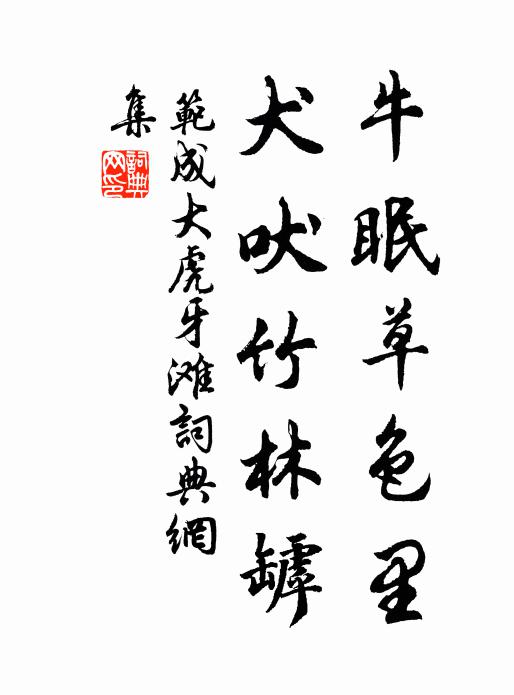 牛眠草色里
犬吠竹林罅
範成大虎牙滩詞典網
集
詞典
网印